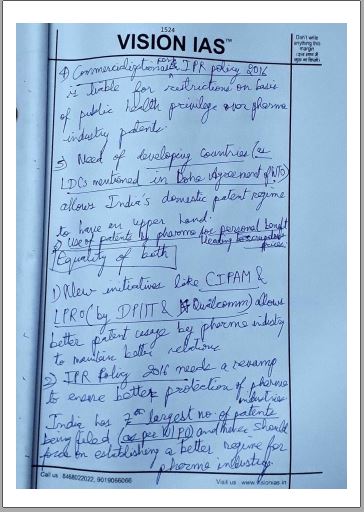 1524
VISION IAS™
Don't write
anything this
margin
4) Commercialization of IPR policy 2016
is liable for restrictions on basis
of public health privilege over pharma
industry patents.
5) Need of developing countries (as
LDCs mentioned in Doha Agreement of WTO)
allows India's domestic patent regime
to have an upper hand.
6) Use of patents by pharma for personal benefit
leading to
prices.
Equality of both
1) New initiatives like CIPAM &
LPRO (by DPIIT & Qualcomm) allows
better patent usage by pharma industry
to maintain better relations.
2) IPR Policy 2016 needs a revamp
to ensure better protection of pharma
industries.
India has 7th largest no. of patents
being filed (as per WIPO) and hence should
focus on establishing a better regime for
pharma industry.
Call us : 8468022022, 9019066066
Visit us : www.visionias.in